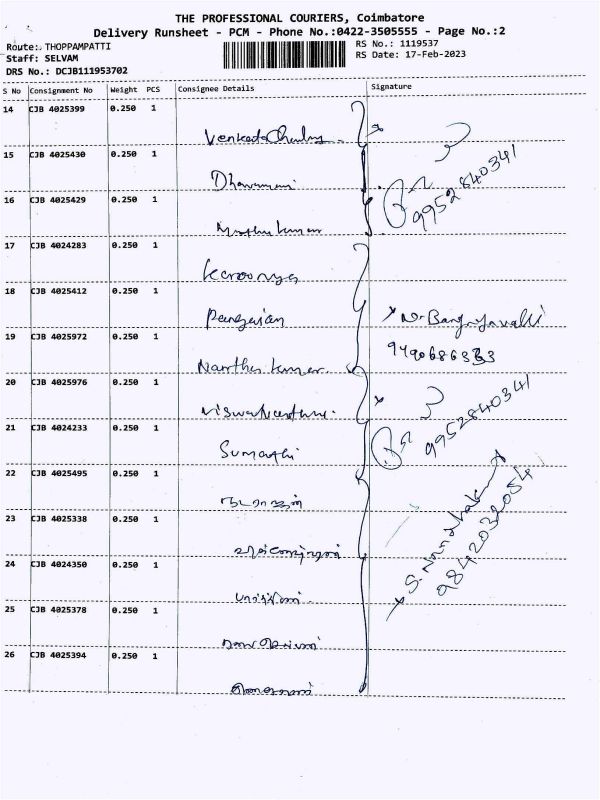 THE PROFESSIONAL COURIERS, Coimbatore
Delivery Runsheet - PCM - Phone No.:0422-3505555 - Page No.:2
Route: THOPPAMPATTI
RS No.: 1119537
Staff: SELVAM
RS Date: 17-Feb-2023
DRS No.: DCJB111953702
S No Consignment No Weight PCS Consignee Details Signature
14 CJB 4025399 0.250 1
15 CJB 4025430 0.250 1
Dhanamani
9952840341
16 CJB 4025429 0.250 1
Muthu kumar
17 CJB 4024283 0.250 1
Karoonya
18 CJB 4025412 0.250 1
19 CJB 4025972 0.250 1
Nantha kumar
20 CJB 4025976 0.250 1
9952840341
21 CJB 4024233 0.250 1
Sumathi
22 CJB 4025495 0.250 1
நடராஜன்
23 CJB 4025338 0.250 1
9842032054
24 CJB 4024350 0.250 1
25 CJB 4025378 0.250 1
26 CJB 4025394 0.250 1